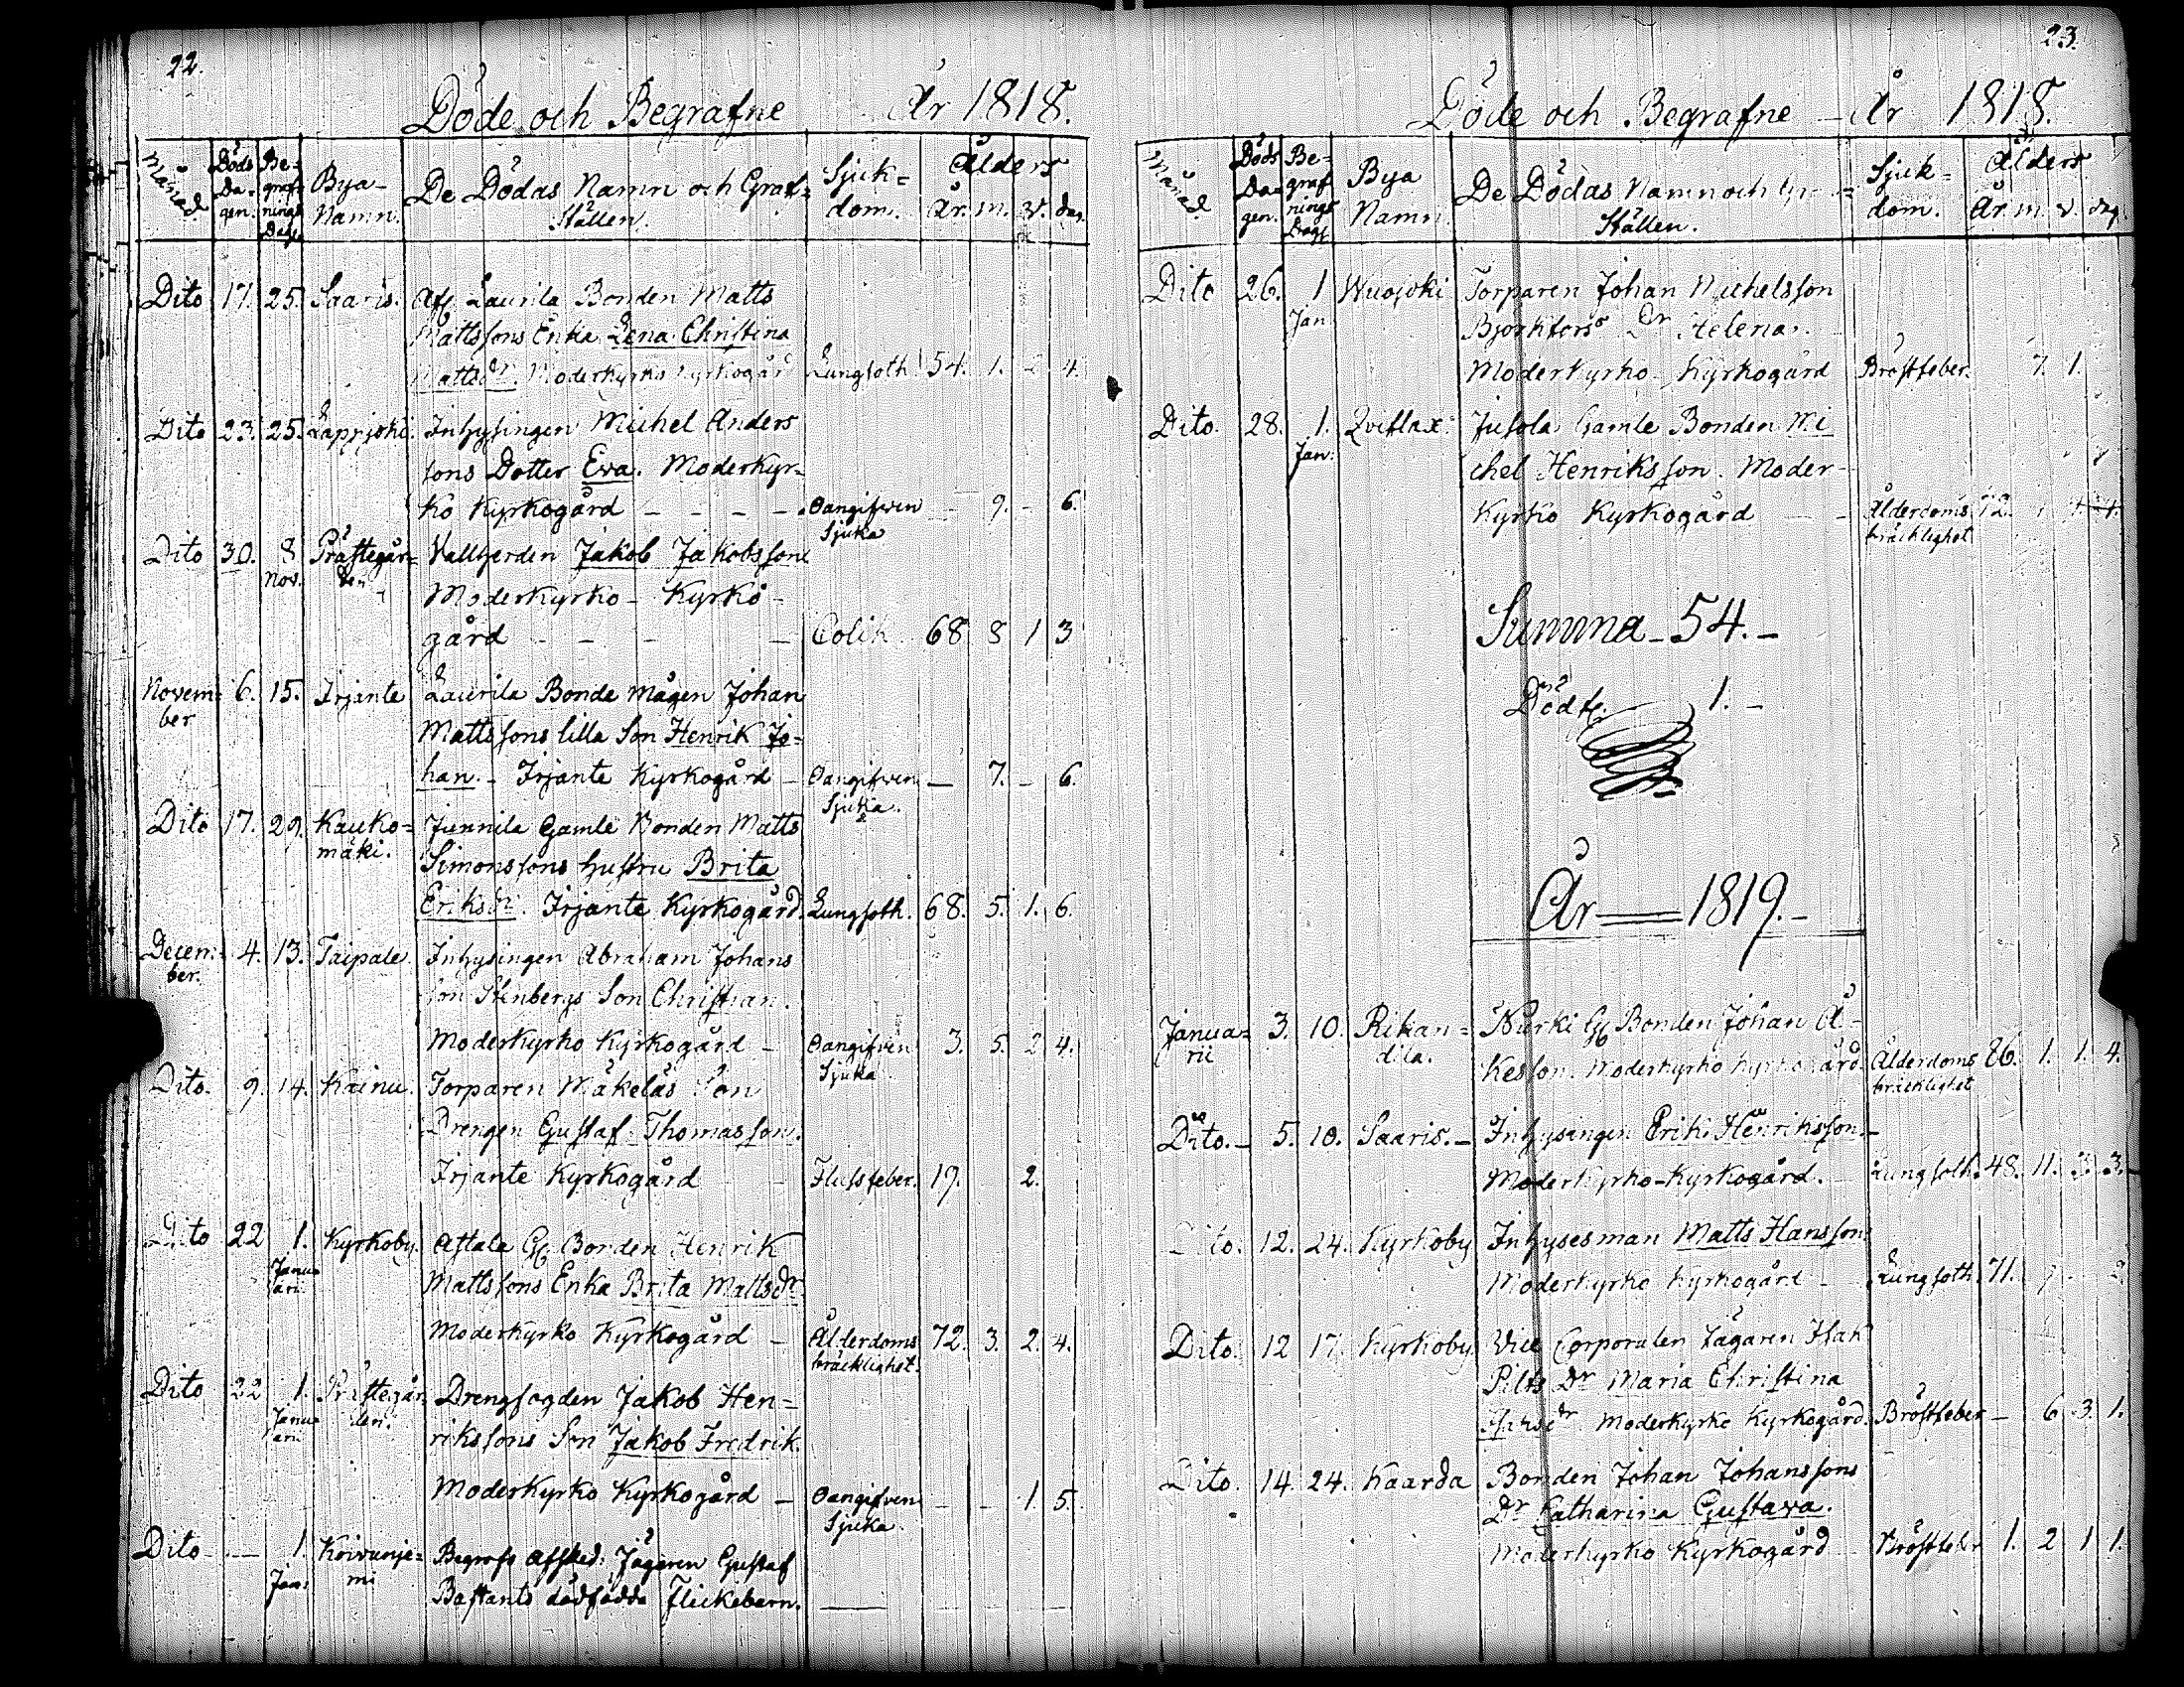 22.
Döde och Begrafne År 1818.
Månad Döds Dagen. Begrafnings Dagen Bya Namn. De Dödas Namn och Graf= Ställen. Sjuk= dom. Ålder År. m. v. dag.
Dito 17. 25. Saaris. Afl. Laurila Bonden Matts
Mattssons Enka Lena Christina
Mattsdr. Moderkyrko Kyrkogård Lungsoth 54. 1. 2 4.
Dito 23. 25. Lappjoki. Inhysingen Michel Anders
sons Dotter Eva. Moderkyr=
ko Kyrkogård - - - - Oangifven - 9. - 6.
Sjuka
Dito 30. 8 Prästegår= Vallherden Jakob Jakobsson
Nov. den
Moderkyrko - Kyrko -
gård - - - - Colik 68 8 1 3
Novem= 6. 15. Irjante Laurila Bonde mågen Johan
ber
Mattssons lilla Son Henrik Jo=
han. - Irjante Kyrkogård - Oangifven — 7. - 6.
Sjuka.
Dito 17. 29. Kauko= Junnila Gamle Bonden Matts
mäki.
Simonssons hustru Brita
Eriksdr. Irjante Kyrkogård. Lungsoth. 68. 5. 1. 6.
Decem= 4. 13. Taipale. Inhysingen Abraham Johans
ber.
son Stenbergs Son Christian.
Moderkyrko Kyrkogård - Oangifven 3. 5. 2 4.
Sjuka
Dito. 9. 14. Kainu. Torparen Mäkeläs Son
Drengen Gustaf Thomasson.
Irjante Kyrkogård Flussfeber. 19. 2.
Dito 22 1. Kyrkoby. Astala Gl. Bonden Henrik
Janu
arii
Mattssons Enka Brita Mattsdr
Moderkyrko Kyrkogård - Ålderdoms 72. 3. 2. 4.
bräcklighet.
Dito 22 1. Prästegår Drengfogden Jakob Hen=
Janu den.
arii
rikssons Son Jakob Fredrik.
Moderkyrko Kyrkogård - Oangifven - - 1. 5.
Sjuka.
Dito — 1. Koivunje= Begrofs Afsked. Jägaren Gustaf
Jan. mi
Bastants dödfödda Flickebarn.
23.
Döde och Begrafne - År 1818.
Månad. Döds Dagen. Begrafnings Dag. Bya Namn De Dödas Namn och Gr = Ställen. Sjuk= dom. Ålder År. m. v. dag.
Dito 26. 1 Wuojoki Torparen Johan Michelsson
Jan
Björkfors Dr Helena.
Moderkyrko - Kyrkogård Bröstfeber. 7. 1.
Dito. 28. 1. Zviflax. Jusola Gamle Bonden Mi
Jan.
chel Henriksson. Moder-
Kyrko Kyrkogård - - Ålderdoms 72.
bräcklighet
Summa - 54. -
Dödf. 1. -
År — 1819. -
Janua= 3. 10. Rikan= Nurki Gl. Bonden Johan Å-
rii dila.
kesson. Moderkyrko Kyrkogård. Ålderdoms 86. 1. 1. 4.
bräcklighet
Dito. - 5. 10. Saaris. - Inhysingen Erik Henriksson. -
Moderkyrko - Kyrkogård. Lungsoth. 48. 11. 3. 3.
Dito. 12. 24. Kyrkoby Inhysesman Matts Hansson.
Moderkyrko Kyrkogård - Lungsoth. 71.
Dito. 12 17. Kyrkoby Vice Corporalen Jägaren Isak
Pilts Dr Maria Christina
Isaksdr. Moderkyrko Kyrkogård. Bröstfeber - 6 3. 1.
Dito. 14. 24. Kaarda Bonden Johan Johanssons
Dr Catharina Gustava.
Moderkyrko Kyrkogård Bröstfeber 1. 2 1 1.